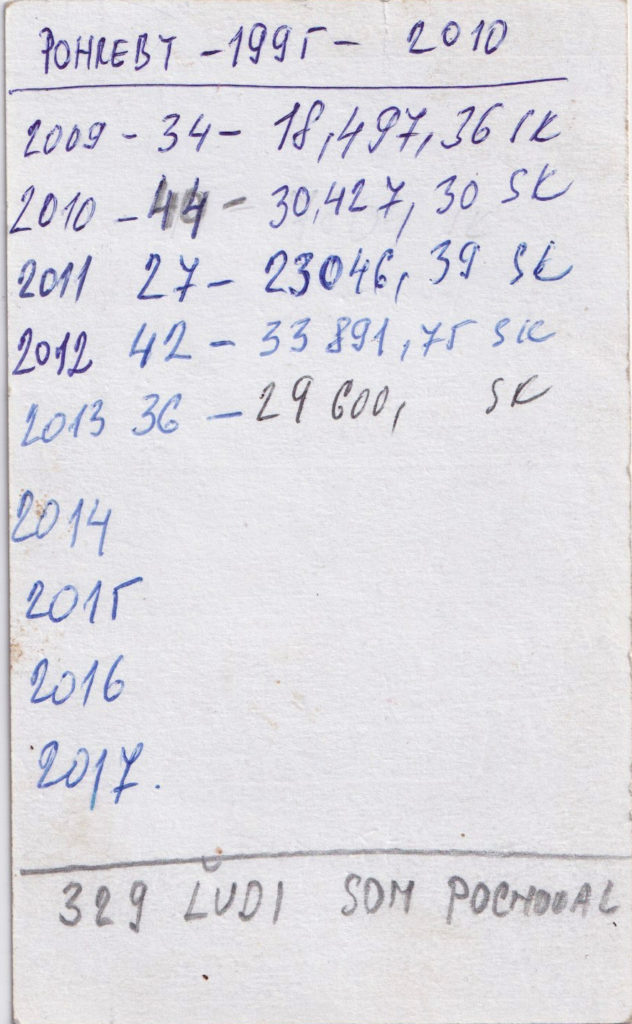 POHREBY - 1995 - 2010
2009 - 34 - 18,497,36 SK
2010 - 44 - 30,427, 30 SK
2011 27 - 23046, 39 SK
2012 42 - 33 891,75 SK
2013 36 - 29 600, SK
2014
2015
2016
2017.
329 ĽUDI SOM POCHOVAL